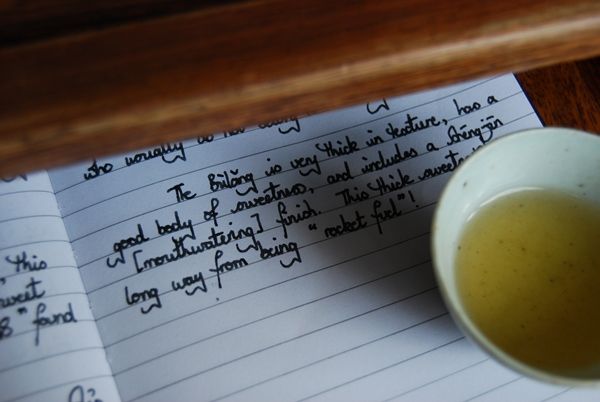 who usually do not
The Bùlǎng is very thick in texture, has a
good body of sweetness, and includes a shēngjīn
[mouthwatering] finish. This thick
long way from being "rocket fuel"!
this
found